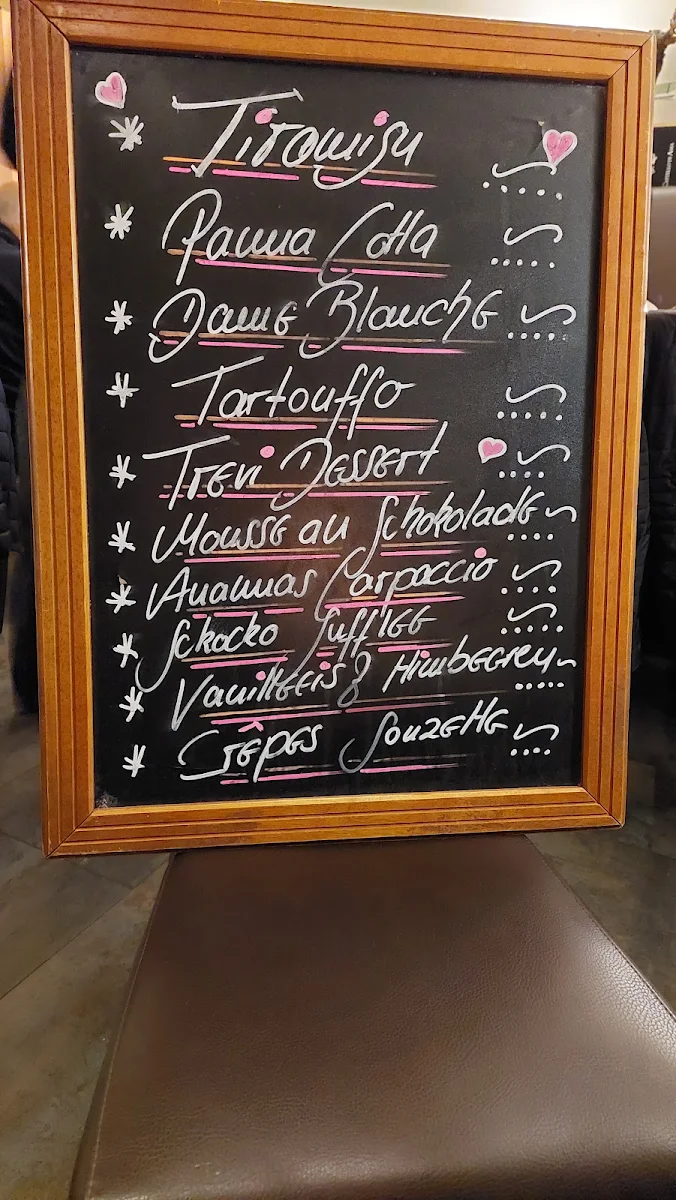 Tiramisu
Panna Cotta
Dame Blanche
Tartouffo
Trevi Dessert
Mousse au Schokolade
Anannas Carpaccio
Schocko Sufflee
Vanilleeis & Himbeeren
Crêpes Souzette